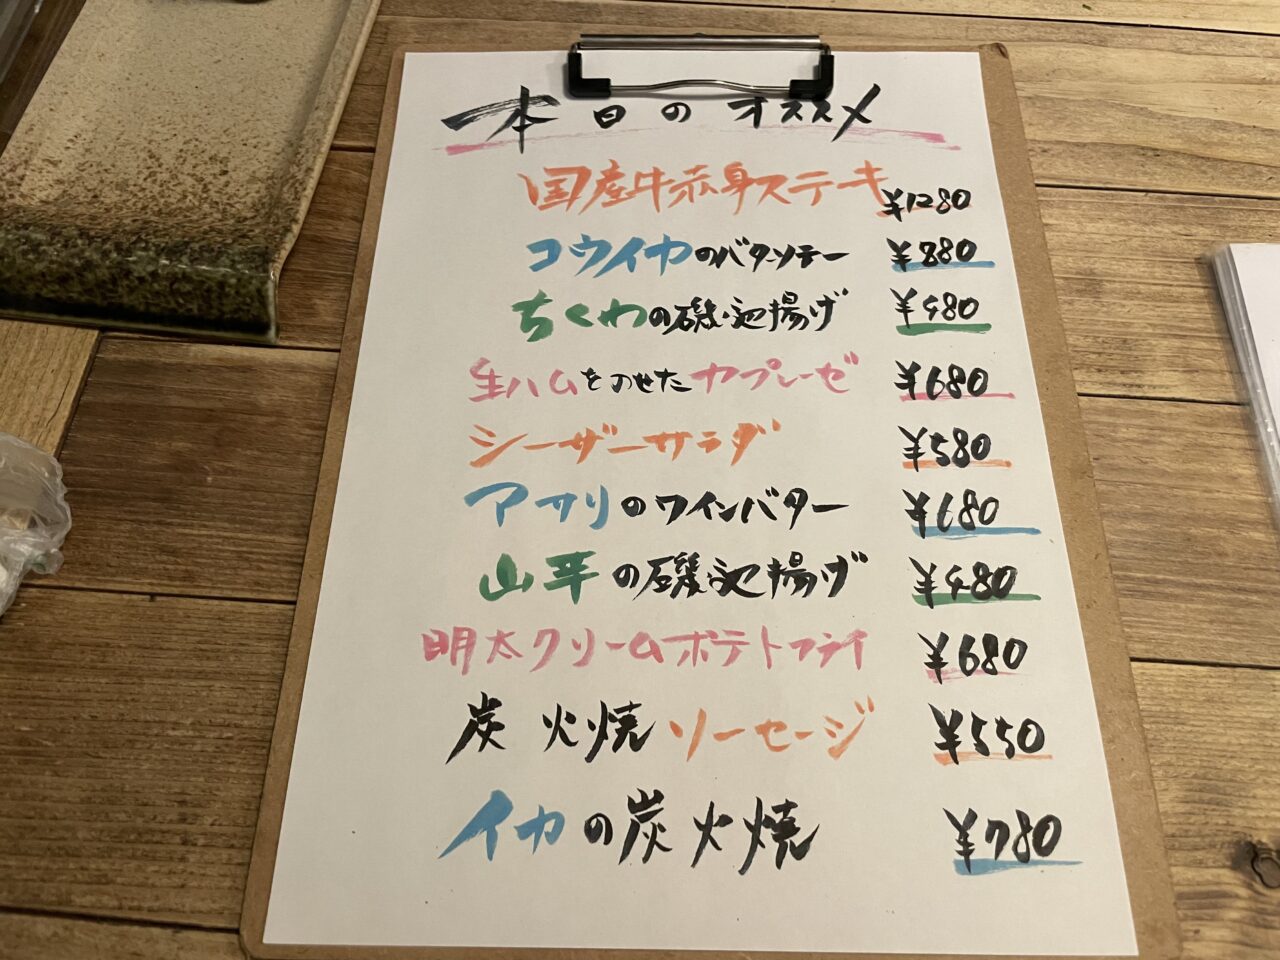 本日のオススメ
国産牛赤身ステーキ ¥1280
コウイカのバタソテー ¥880
ちくわの磯辺揚げ ¥480
生ハムをのせたカプレーゼ ¥680
シーザーサラダ ¥580
アサリのワインバター ¥680
山芋の磯辺揚げ ¥480
明太クリームポテトフライ ¥680
炭火焼ソーセージ ¥550
イカの炭火焼 ¥780